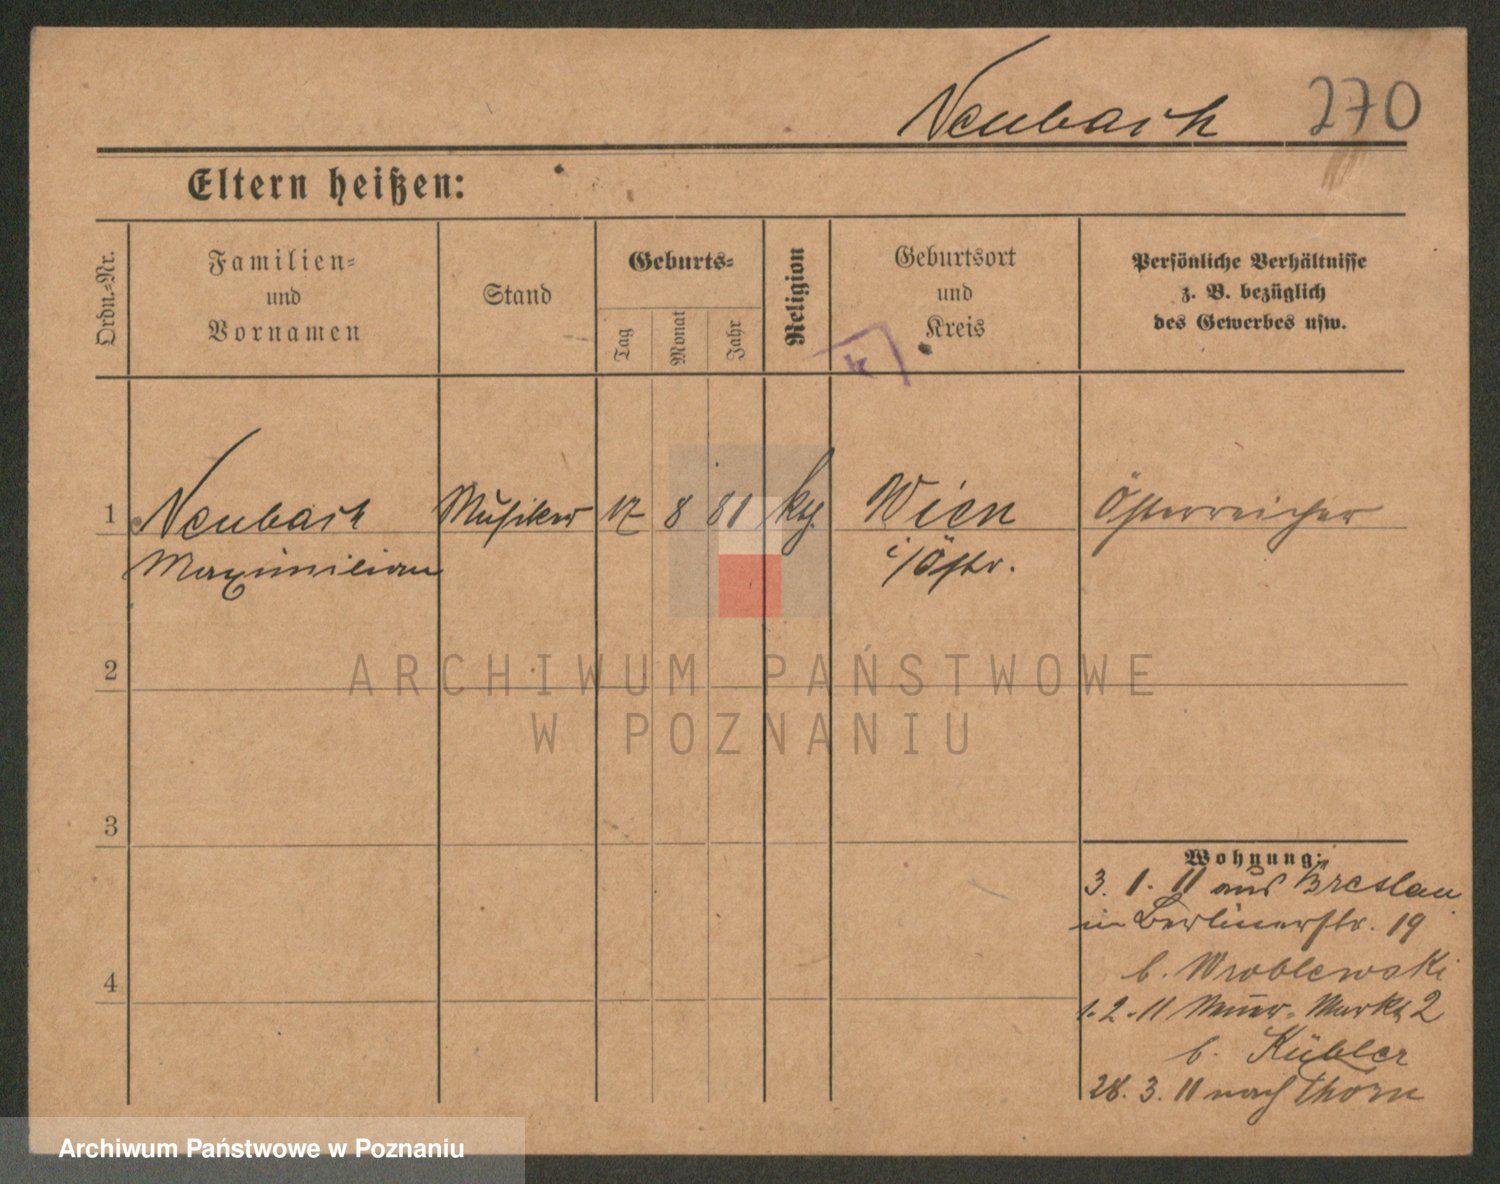 Neubach 270
Eltern heißen:
Ordn.-Nr.
Familien-
und
Vornamen
Stand
Geburts-
Tag
Monat
Jahr
Religion
Geburtsort
und
Kreis
Persönliche Verhältnisse
z. B. bezüglich
des Gewerbes usw.
1 Neubach Musiker 17 8 81 Wien Österreicher
Maximilian i/Östr.
2
ARCHIWUM PAŃSTWOWE
W POZNANIU
3
Wohnung:
3. 1. 11 aus Breslau
in Berlinerstr. 19
b. Wroblewski
4
1. 2. 11 Markt 2
b. Kübler
28. 3. 11 nach Thorn
Archiwum Państwowe w Poznaniu